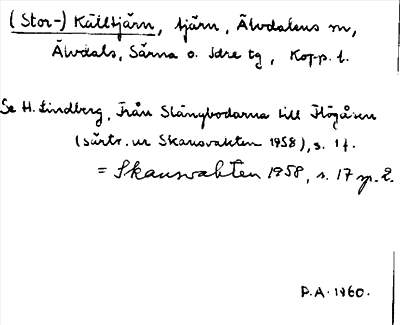 (Stor-) Källtjärn, tjärn, Älvdalens sn,
Älvdals, Särna o. Idre tg, Kopp. l.
Se H. Lindberg, Från Slängbodarna till Högåsen
(särtr. ur Skansvakten 1958), s. 1 f.
= Skansvakten 1958, s. 17 sp. 2.
P.A. 1960.